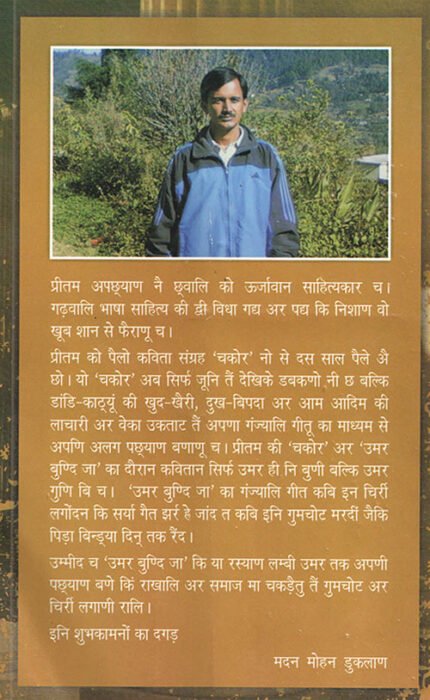 प्रीतम अपछ्याण नै छ्वालि को ऊर्जावान साहित्यकार च।
गढ़वालि भाषा साहित्य की द्वी विधा गद्य अर पद्य कि निशाण वो
खूब शान से फैराणू च।
प्रीतम को पैलो कविता संग्रह 'चकोर' नो से दस साल पैले ऐ
छो। यो 'चकोर' अब सिर्फ जूनि तैं देखिके डबकणो नी छ बल्कि
डांडि-काठ्यूं की खुद-खैरी, दुख-बिपदा अर आम आदिम की
लाचारी अर वेका उकताट तैं अपणा गंज्यालि गीतू का माध्यम से
अपणि अलग पछ्याण बणाणू च। प्रीतम की 'चकोर' अर 'उमर
बुण्दि जा' का दौरान कवितान सिर्फ उमर ही नि बुणी बल्कि उमर
गुणि बि च। 'उमर बुण्दि जा' का गंज्यालि गीत कबि इन चिर्री
लगोंदन कि सर्या गैत झर्र हे जांद त कबि इनि गुमचोट मरदीं जैकि
पिड़ा बिन्ड्या दिनू तक रैंद।
उम्मीद च 'उमर बुण्दि जा' कि या रस्याण लम्बी उमर तक अपणी
पछ्याण बणे कि राखालि अर समाज मा चकड़ैतु तैं गुमचोट अर
चिर्री लगाणी रालि।
इनि शुभकामनों का दगड़
मदन मोहन डुकलाण